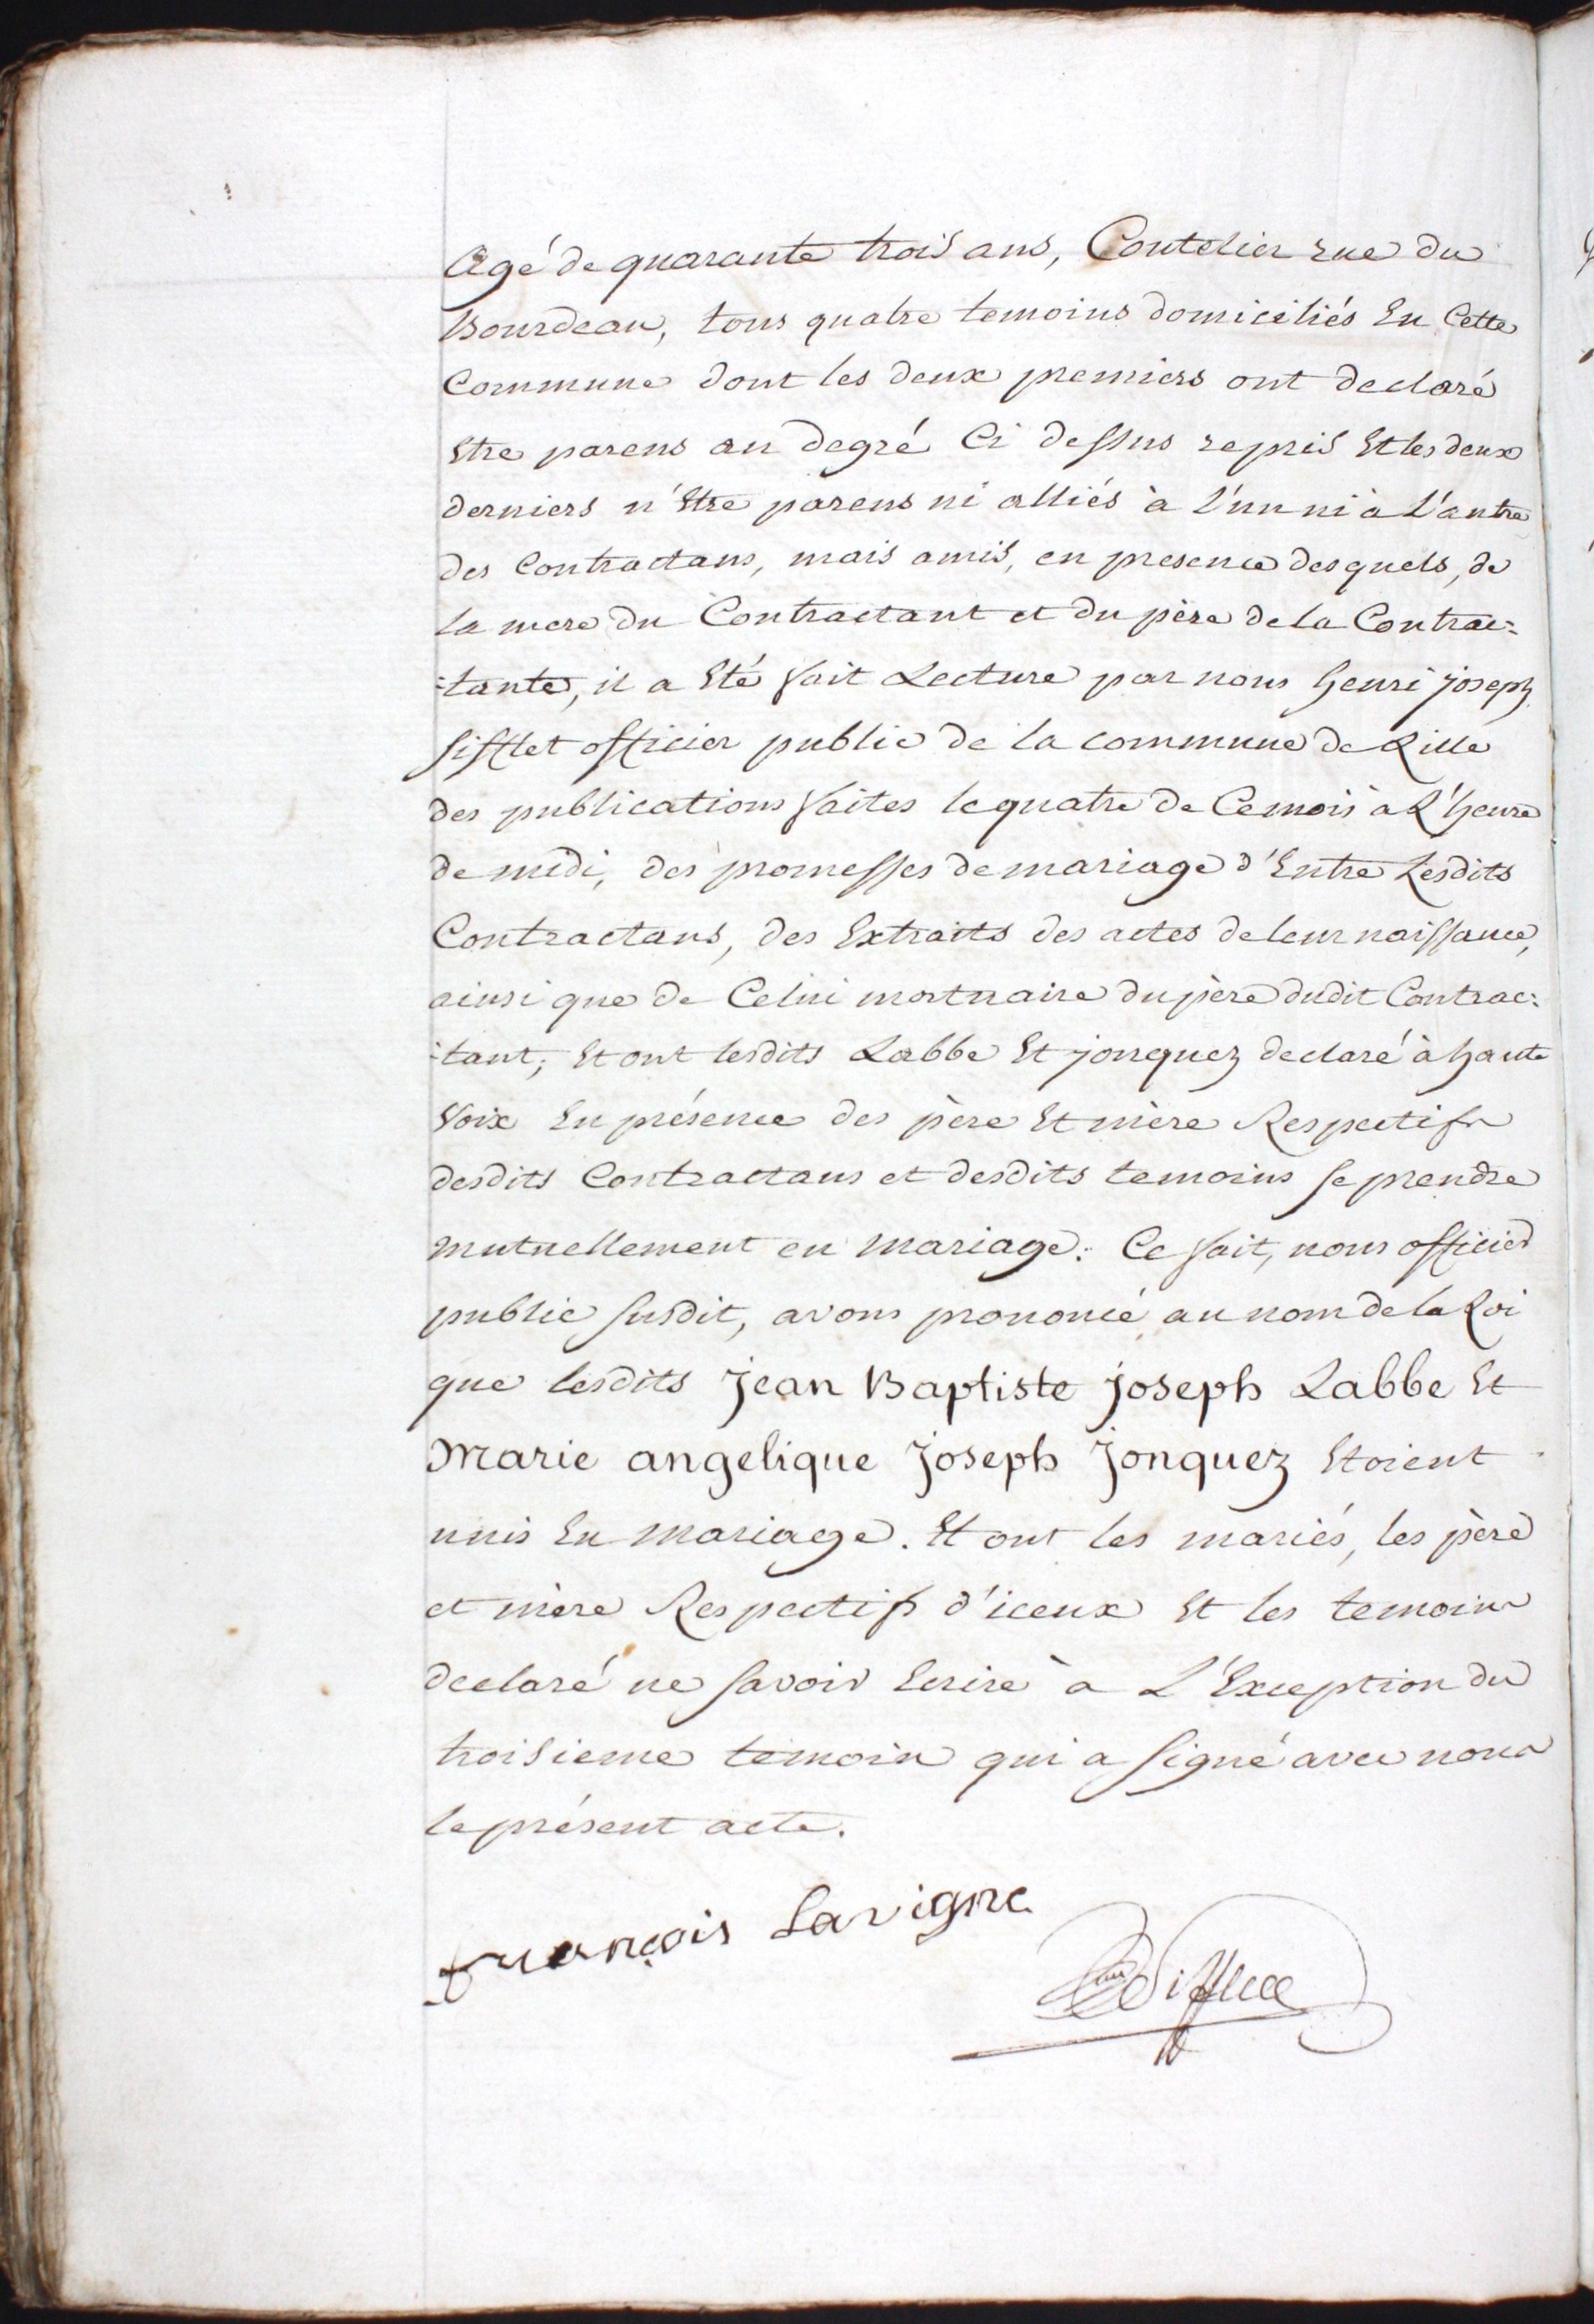 Agé de quarante trois ans, Coutelier rue du
Bourdeau, tous quatre temoins domiciliés En Cette
Commune dont les deux premiers ont declaré
Etre parens au degré Ci dessus repris Et les deux
derniers n'Etre parens ni alliés à l'un ni à L'autre
des Contractans, mais amis, en presence desquels, de
la mere du Contractant et du père de la Contrac=
=tante, il a Eté fait Lecture par nous henri joseph
Sifflet officier public de la commune de Lille
des publications faites le quatre de Ce mois à L'heure
de midi, des promesses de mariage d'Entre Lesdits
Contractans, des Extraits des actes de leur naissance,
ainsi que de Celui mortuaire du père dudit Contrac=
=tant; Et ont lesdits Labbe Et jonquez declaré à haute
Voix En présence des père Et mère Respectifs
desdits Contractans et desdits temoins se prendre
mutuellement en mariage. Ce fait, nous officier
public susdit, avons prononcé au nom de la Loi
que lesdits Jean Baptiste joseph Labbe Et
Marie angelique Joseph Jonquez Etoient
unis En mariage. Et ont les mariés, les père
et mère Respectifs d'iceux Et les temoins
declaré ne savoir Ecrire à L'Exception du
troisieme temoin qui a signé avec nous
le présent acte.
françois Lavigne
Sifflet